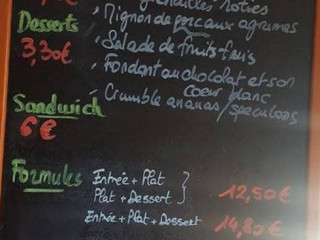 rôties
Desserts
. Mignon de porc aux agrumes
3,30€
. Salade de fruits frais
. Fondant au chocolat et son
coeur blanc
Sandwich
. Crumble ananas/speculoos
6€
Formules Entrée + Plat
Plat + Dessert } 12,50€
Entrée + Plat + Dessert 14,80€